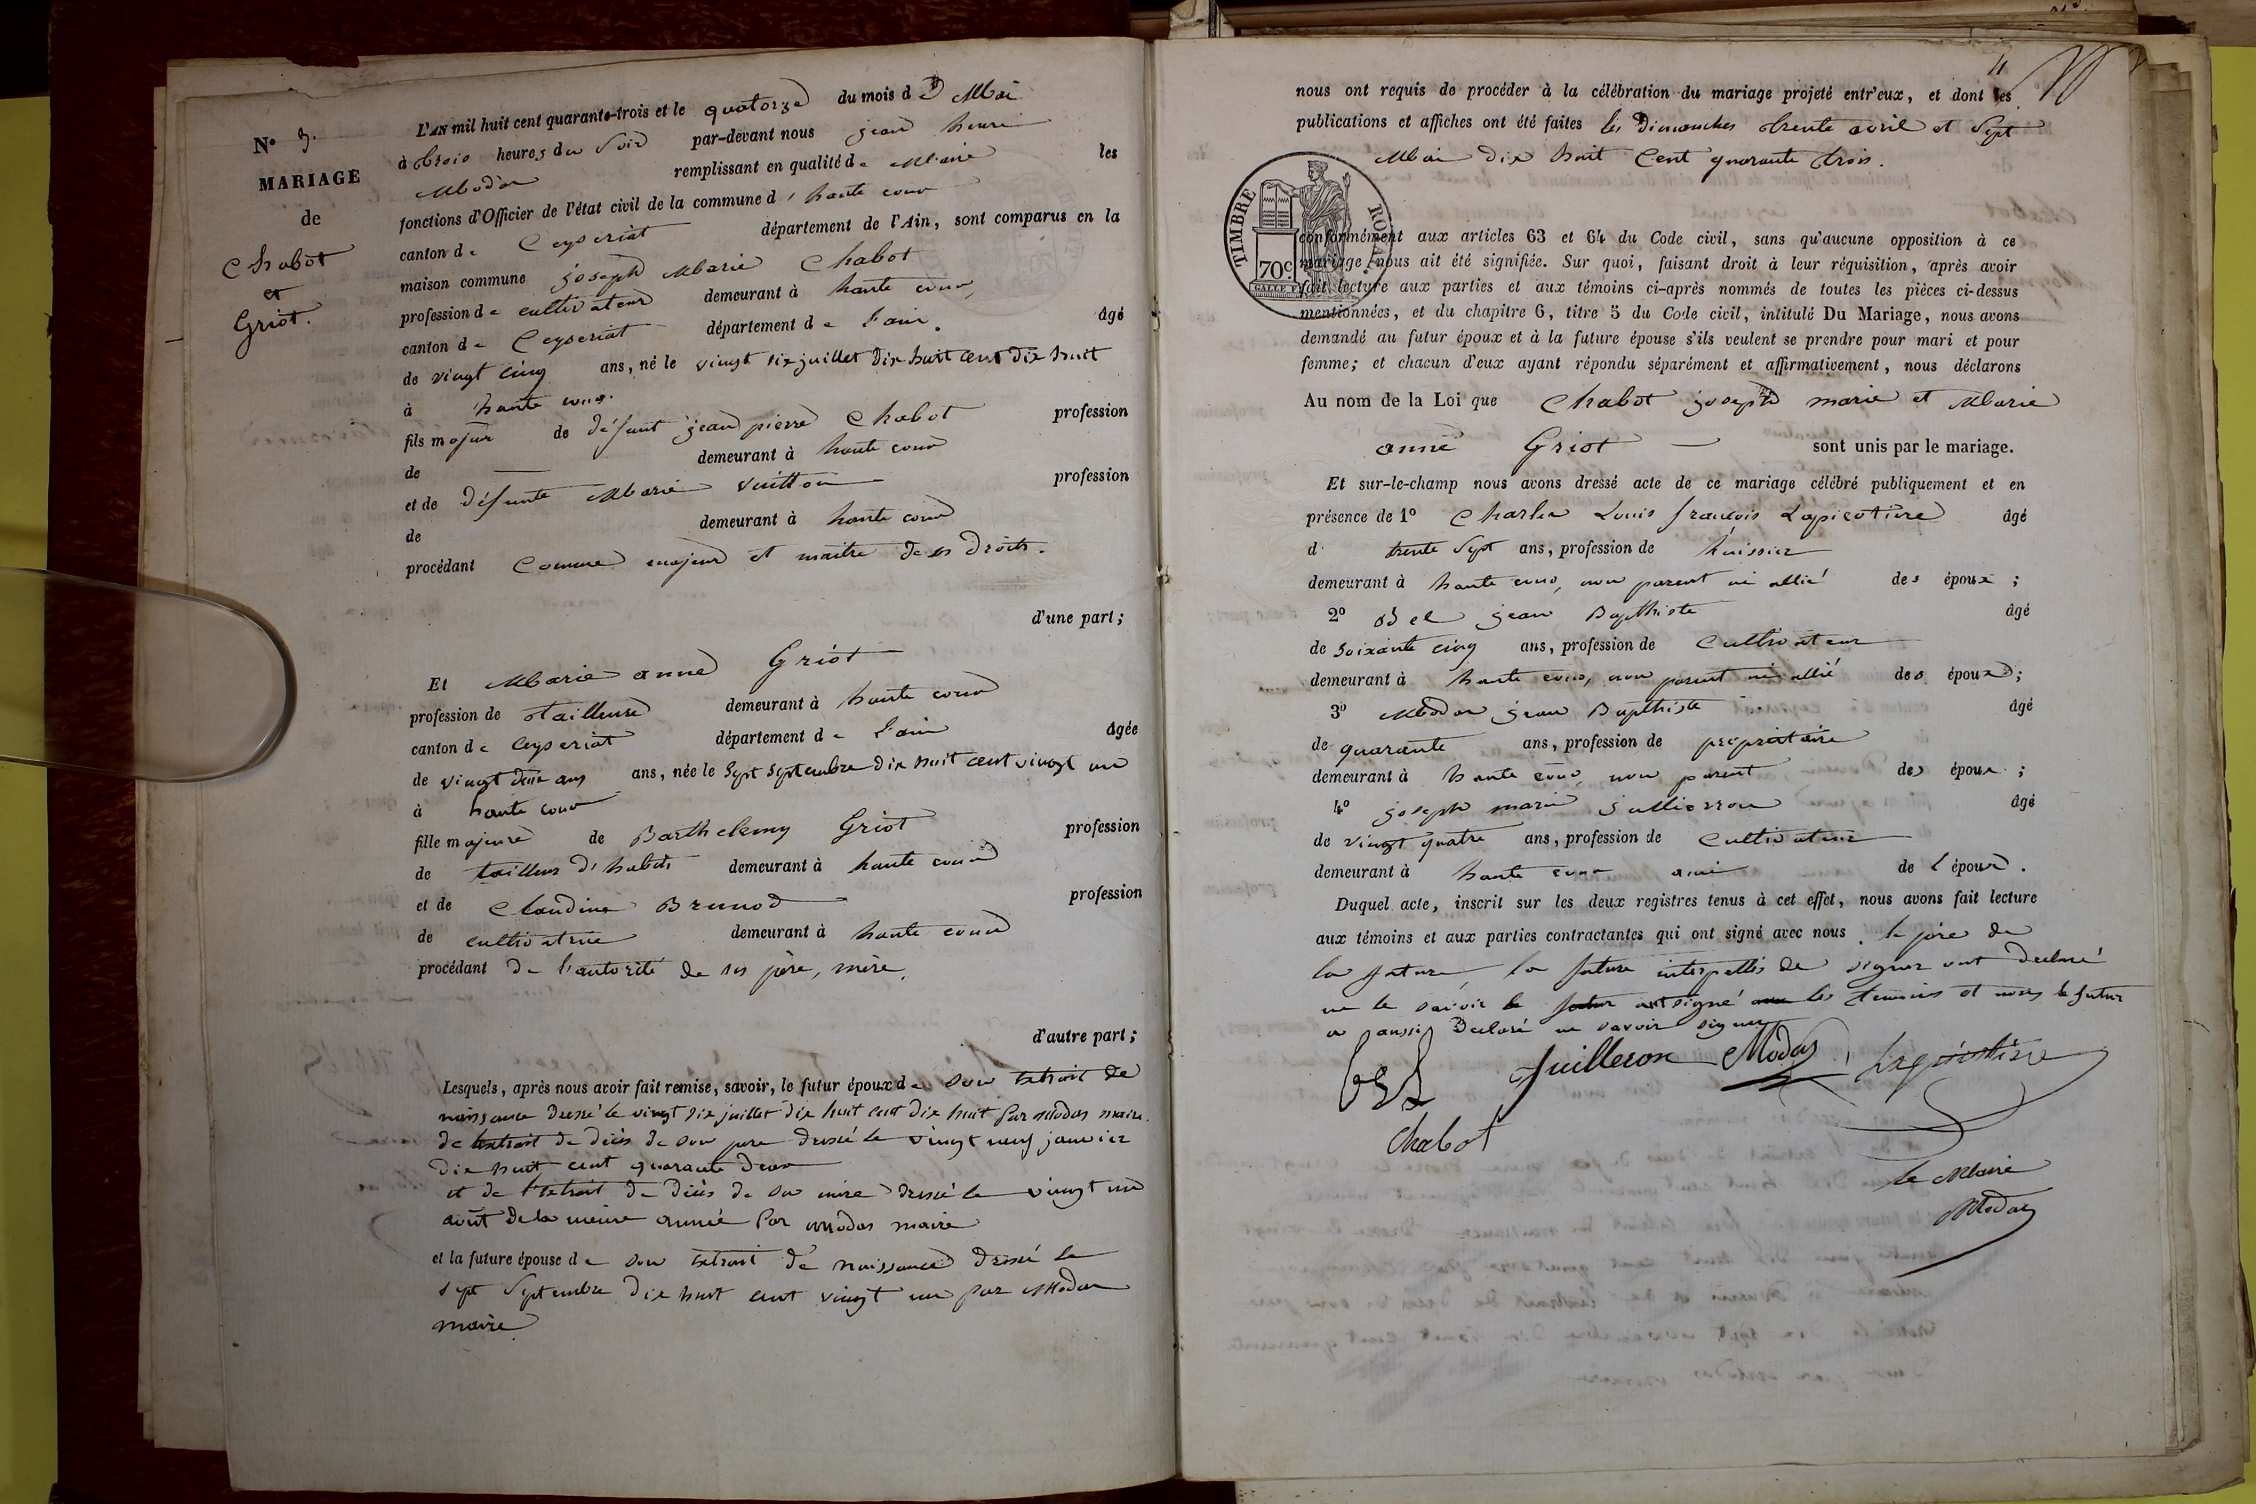 N.º 3.
MARIAGE
de
Chabot
et
Griot.
L'AN mil huit cent quarante-trois et le quatorze du mois de Mai
à trois heures du Soir par-devant nous jean henri
Modas remplissant en qualité de Maire les
fonctions d'Officier de l'état civil de la commune d'haute cour
canton de Ceyseriat département de l'Ain, sont comparus en la
maison commune joseph Marie Chabot
profession de cultivateur demeurant à haute cour,
canton de Ceyseriat département de l'ain. âgé
de vingt cinq ans, né le vingt six juillet Dix huit cent dix huit
à haute cour.
fils majeur de défunt jean pierre Chabot profession
de — demeurant à haute cour
et de défunte Marie Vuitton profession
de demeurant à haute cour
procédant Comme majeur et maitre de ses droits.
d'une part;
Et Marie anne Griot
profession de tailleuse demeurant à haute cour
canton de Ceyseriat département de l'ain âgée
de vingt deux ans ans, née le Sept Septembre dix huit cent vingt un
à haute cour
fille majeure de Barthelemy Griot profession
de tailleur d'habits demeurant à haute cour
et de Claudine Brunod profession
de cultivatrice demeurant à haute cour
procédant de l'autorité de ses père, mère,
d'autre part;
Lesquels, après nous avoir fait remise, savoir, le futur époux de son extrait de
naissance dressé le vingt six juillet dix huit cent dix huit par Modas maire.
de l'extrait de décès de son pere dressé le vingt neuf janvier
dix huit cent quarante deux
et de l'extrait de décès de sa mère dressé le vingt un
août de la meme année par Modas maire
et la future épouse de son extrait de naissance dressé le
sept Septembre dix huit cent vingt un par Modas
maire
4
nous ont requis de procéder à la célébration du mariage projeté entr'eux, et dont les
publications et affiches ont été faites les Dimanches trente avril et Sept
Mai dix huit Cent quarante trois.
TIMBRE ROYAL
70 c.
conformément aux articles 63 et 64 du Code civil, sans qu'aucune opposition à ce
mariage nous ait été signifiée. Sur quoi, faisant droit à leur réquisition, après avoir
fait lecture aux parties et aux témoins ci-après nommés de toutes les pièces ci-dessus
mentionnées, et du chapitre 6, titre 5 du Code civil, intitulé Du Mariage, nous avons
demandé au futur époux et à la future épouse s'ils veulent se prendre pour mari et pour
femme; et chacun d'eux ayant répondu séparément et affirmativement, nous déclarons
Au nom de la Loi que Chabot joseph marie et Marie
anne Griot — sont unis par le mariage.
Et sur-le-champ nous avons dressé acte de ce mariage célébré publiquement et en
présence de 1º Charles Louis françois Lapicotiere âgé
d trente Sept ans, profession de huissier
demeurant à haute cour, non parent ni allié des époux;
2º Bel jean Bapthiste âgé
de soixante cinq ans, profession de Cultivateur
demeurant à haute cour, non parent ni allié des époux;
3º Modas jean Bapthiste âgé
de quarante ans, profession de propriétaire
demeurant à haute cour, non parent des époux;
4º joseph marie juillerron âgé
de vingt quatre ans, profession de Cultivateur
demeurant à haute cour ami de l'époux.
Duquel acte, inscrit sur les deux registres tenus à cet effet, nous avons fait lecture
aux témoins et aux parties contractantes qui ont signé avec nous. le père de
la future la future interpellés de signer ont declaré
ne le savoir le futur ont signé avec les temoins et nous le futur
a aussi Declaré ne savoir signer
Bel Juilleron Modas Lapicotière
Chabot
le Maire
Modas